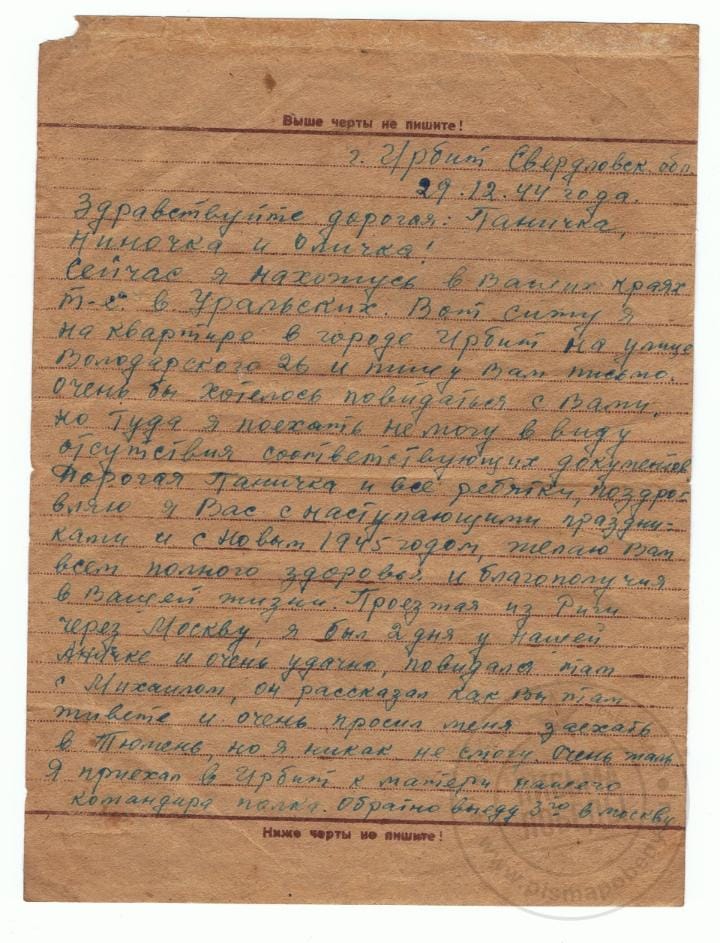 Выше черты не пишите!
г. Ирбит Свердловск. обл.
29.12.44 года.
Здравствуйте дорогая: Паничка,
Ниночка и Оличка!
Сейчас я нахожусь в Ваших краях
т-е. в Уральских. Вот сижу я
на квартире в городе Ирбит на улице
Володарского 26 и пишу Вам письмо.
очень бы хотелось повидаться с Вами,
но туда я поехать не могу в виду
отсутствия соответствующих документов
Дорогая Паничка и все ребятки, поздра-
вляю я Вас с наступающими праздни-
ками и с Новым 1945 годом, желаю Вам
всем полного здоровья и благополучия
в Вашей жизни. Проезжая из Риги
через Москву, я был 2 дня у нашей
Анички и очень удачно, повидался там
с Михаилом, он рассказал как Вы там
живете и очень просил меня заехать
в Тюмень, но я никак не смогу. Очень жаль
Я приехал в Ирбит к матери нашего
командира полка. Обратно выеду 3го в Москву
Ниже черты не пишите!
www.pismapobedy